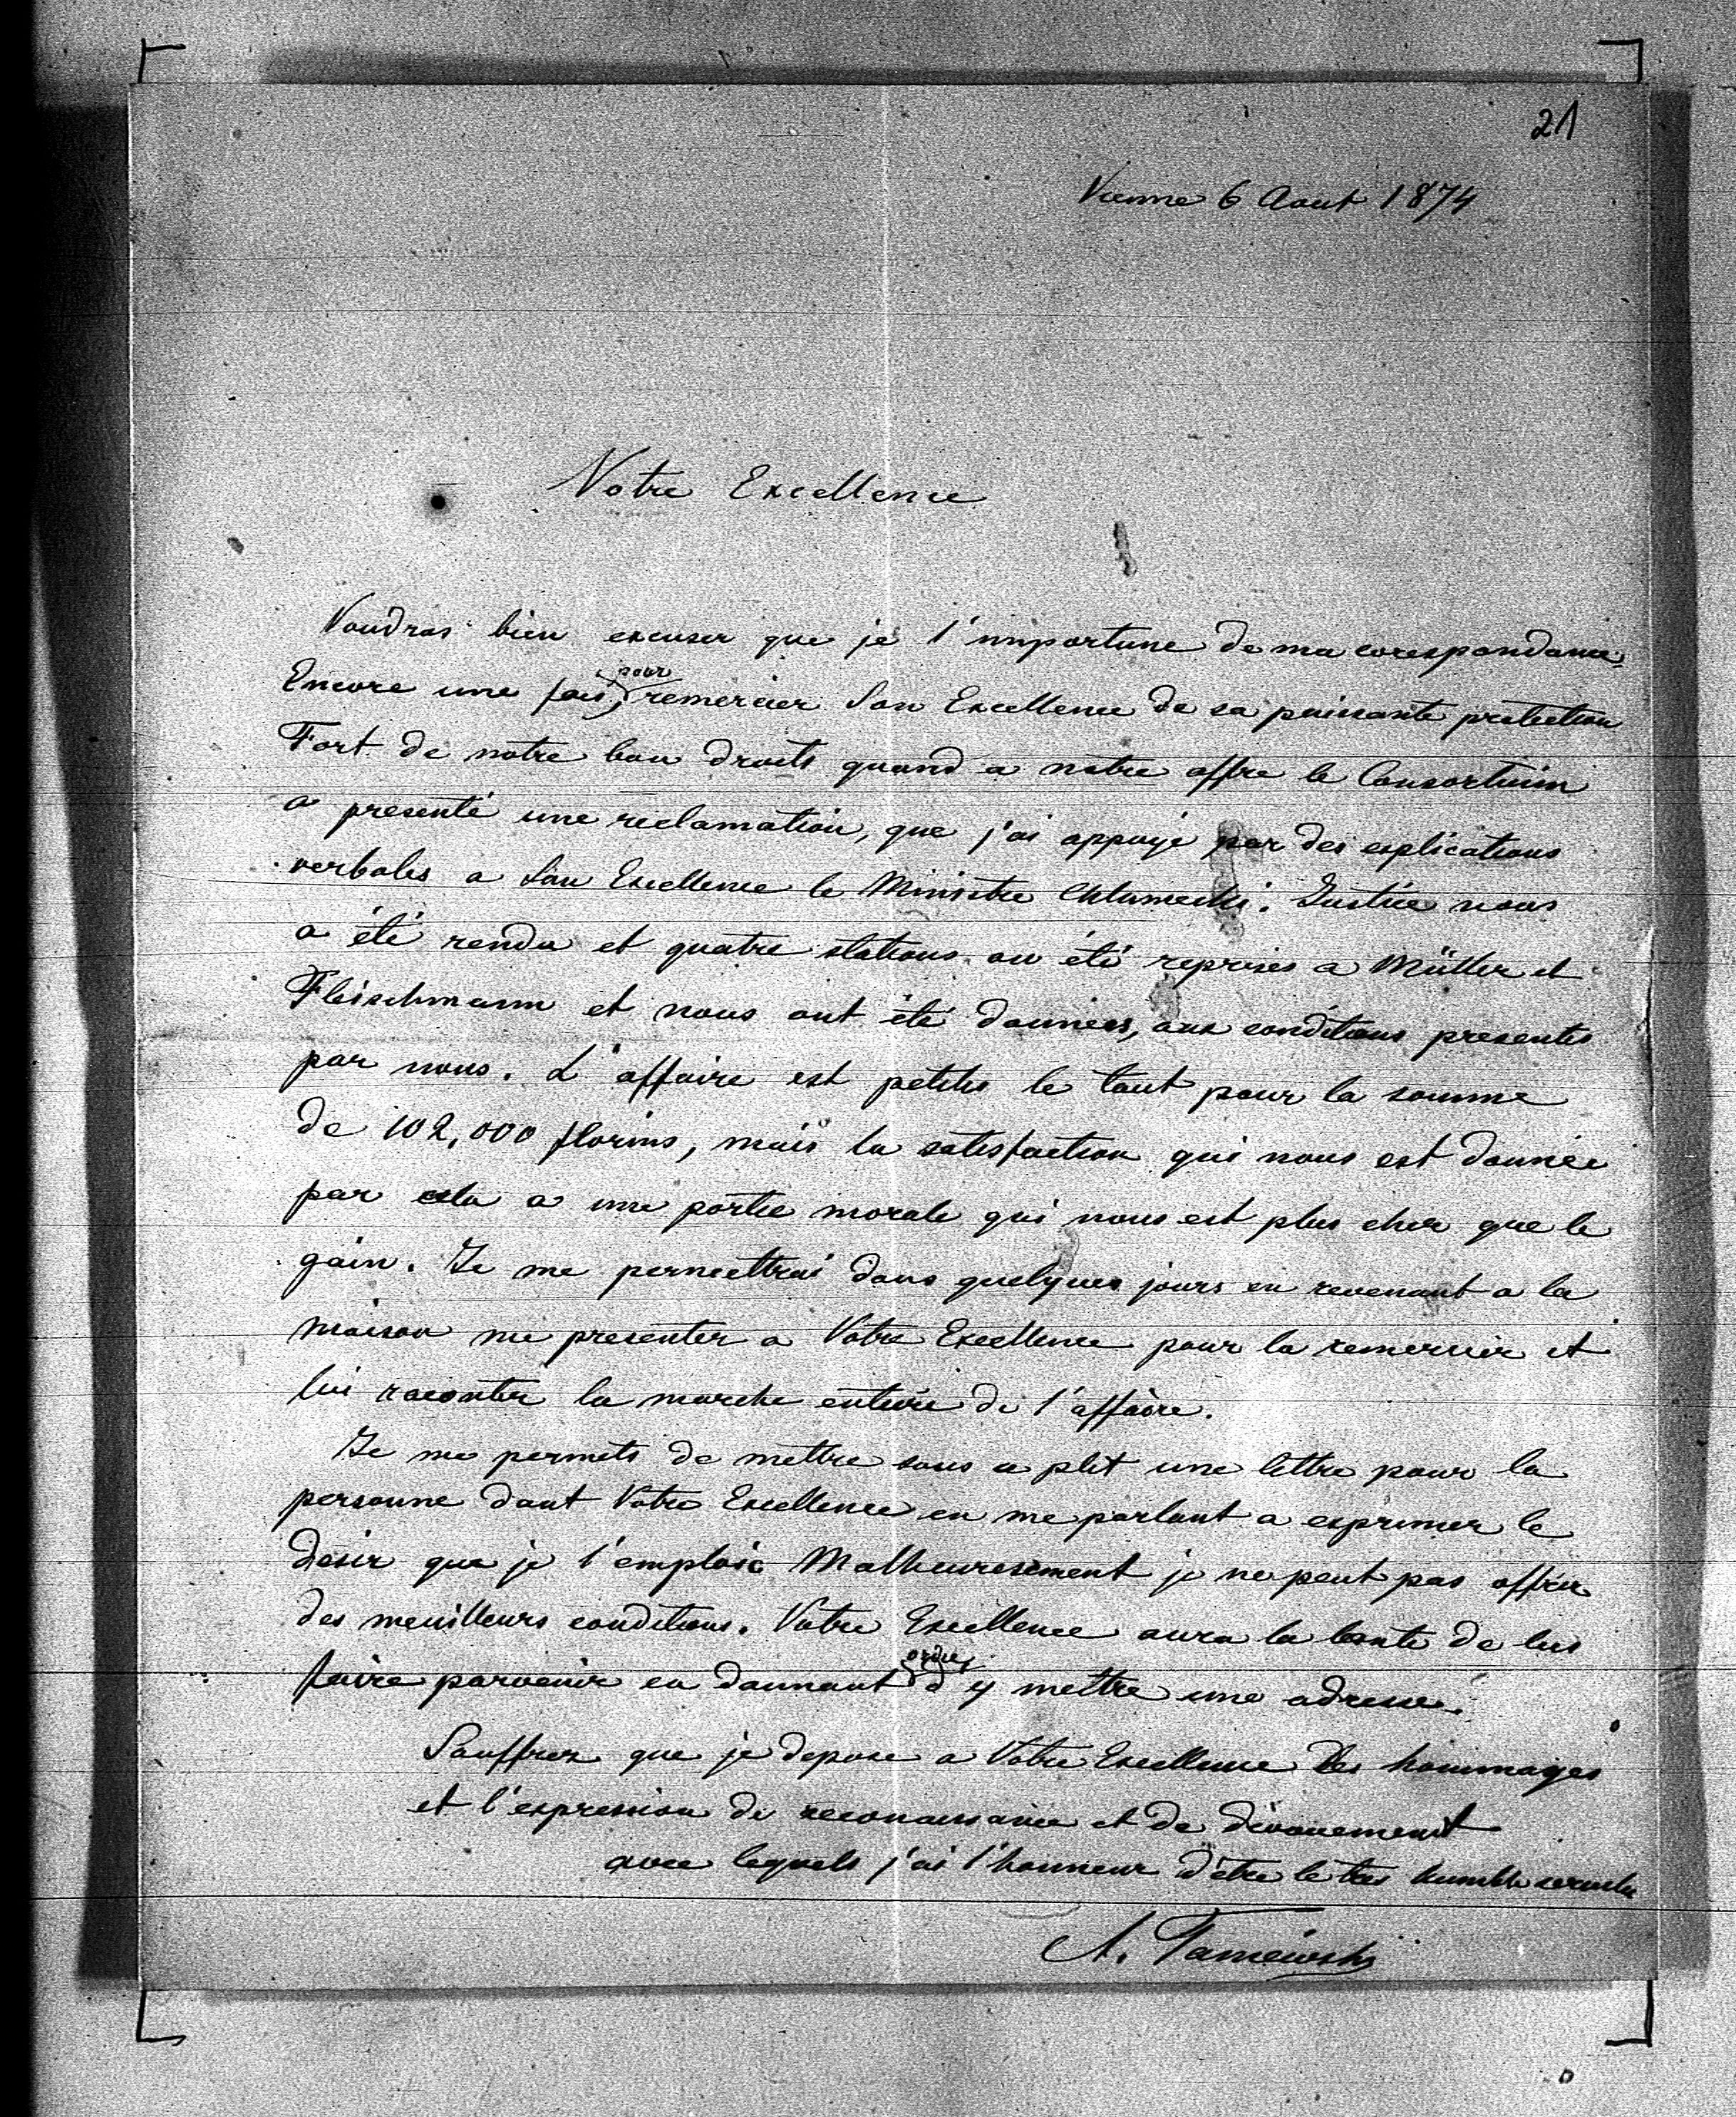 21
Vienne 6 Aout 1874
Votre Excellence
Voudras bien excuser que je l'importune de ma corespondance.
pour
Encore une fois, remercier Son Excellence de sa puissante protection
Fort de notre bon droits quand a notre offre le Consortium
a presenté une reclamation, que j'ai appuyé par des explications
verbales a Son Excellence le Ministre Chlumecki. Justice nous
a été rendu et quatre stations on été reprises a Müller et
Fleischmann et nous ont été données, aux conditions presentés
par nous. L'affaire est petite le tout pour la somme
de 102,000 florins, mais la satisfaction qui nous est donnée
par cela a une portie morale qui nous est plus cher que le
gain. Je me permettrai dans quelques jours en revenant a la
maison me presenter a Votre Excellence pour la remercier et
lui raconter la marche entière de l'affaire.
Je me permets de mettre sous ce plit une lettre pour la
personne dont Votre Excellence en me parlant a exprimer le
desir que je l'emploie Malheuresement je ne peut pas offrir
des meuilleurs conditions. Votre Excellence aura la bonté de lui
ordre
faire parvenir en donnant d'y mettre une adresse.
Souffrez que je depose a Votre Excellence des hommages
et l'expression de reconaissance et de dévouement
avec lequels j'ai l'honneur d'être le tres humble
A.